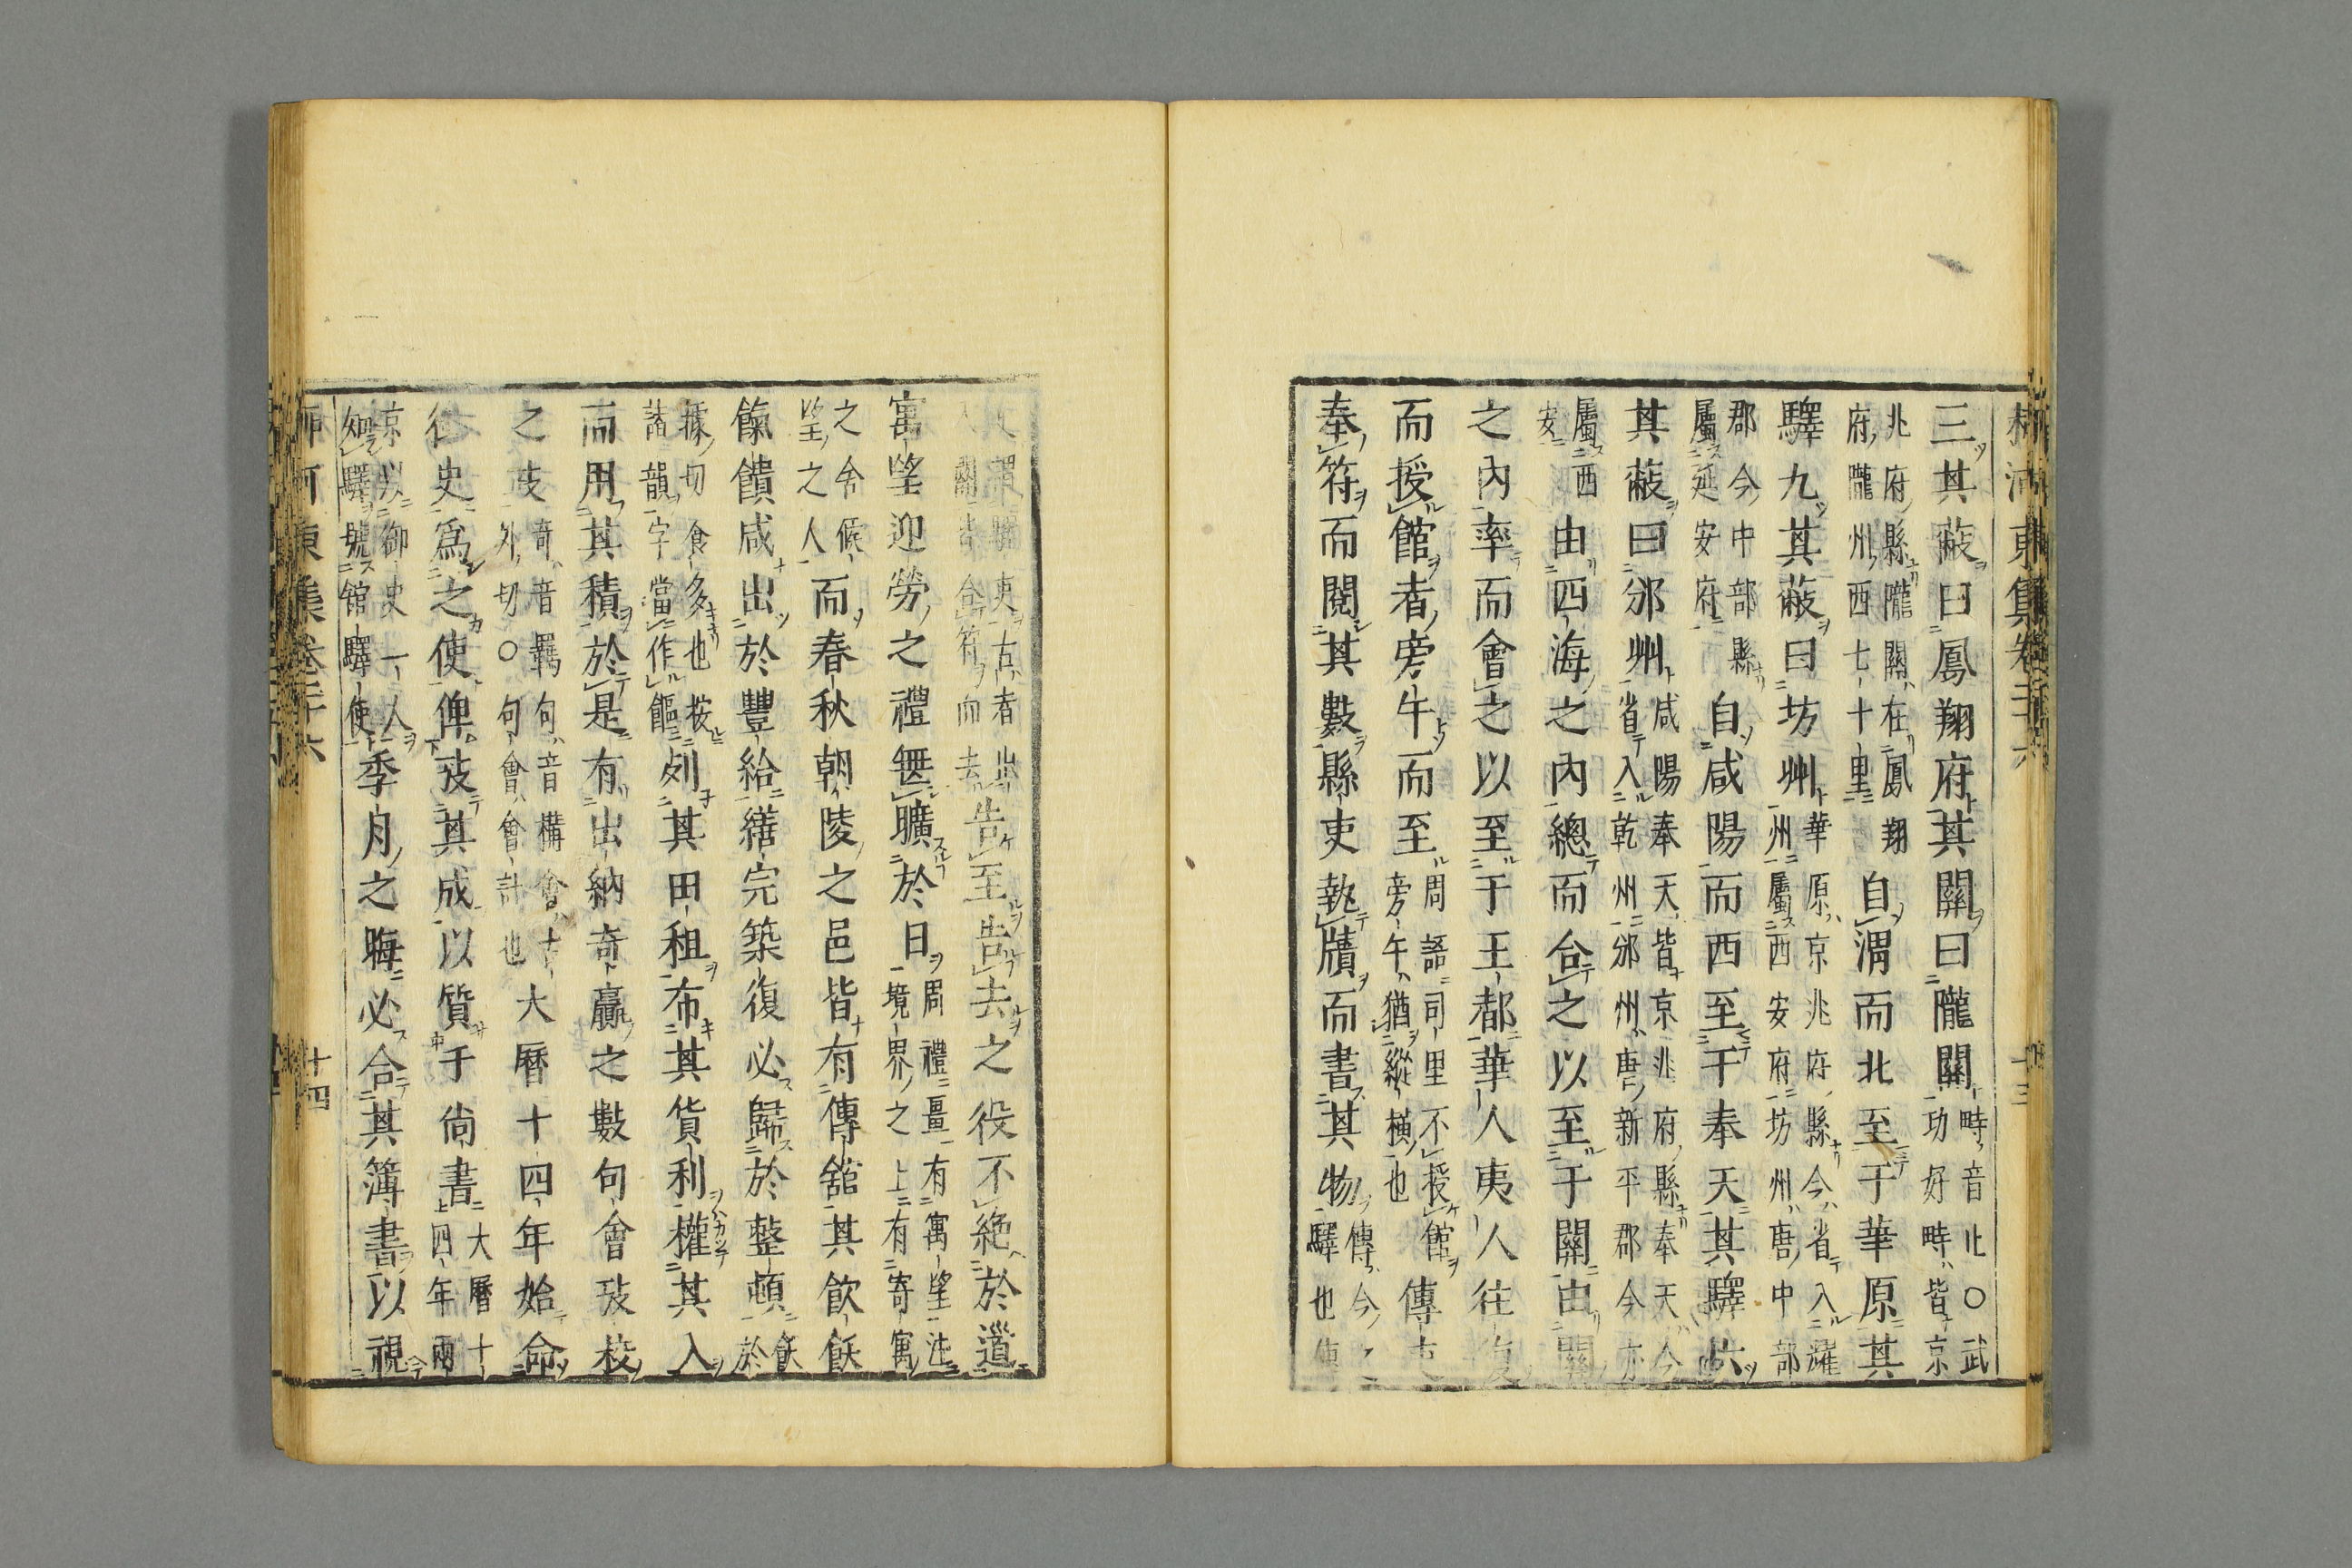 柳河東集卷二十六　十三
三其蔽曰鳳翔府其關曰隴關
畤音止○武
功好畤皆京
兆府縣隴關在鳳翔
府隴州西七十里
自渭而北至于華原其
驛九其蔽曰坊州
華原京兆府縣今省入耀
州屬西安府坊州唐中部
郡今中部縣
屬延安府
自咸陽而西至于奉天其驛六
其蔽曰邠州
咸陽奉天皆京兆府縣奉天今
省入乾州邠州唐新平郡今亦
屬西
安
由四海之內總而合之以至于關由關
之內率而會之以至于王都華人夷人往復
而授館者旁午而至
周語司里不授館
旁午猶縱橫也
傳吏
奉符而閱其數縣吏執牘而書其物
傳今之
驛也傳
吏謂驛吏古者出
入關者合符而去
告至告去之役不絶於道
寓望迎勞之禮無曠於日
周禮畺有寓望注
境界之上有寄寓
之舍候
望之人
而春秋朝陵之邑皆有傳舘其飲飫
餼饋咸出於豐給繕完築復必歸於整頓
飫
於
據切食多也按
諸韻字當作
列其田租布其貨利權其入
而用其積於是有出納奇贏之數句會攷校
之
奇音羈句音構會古
外切○句會會計也
大曆十四年始命
史為之使俾攷其成以質于尚書
大曆十
四年兩
京以御史一人
知驛號館驛使
季月之晦必合其簿書以視
柳河東集卷二十六　十四